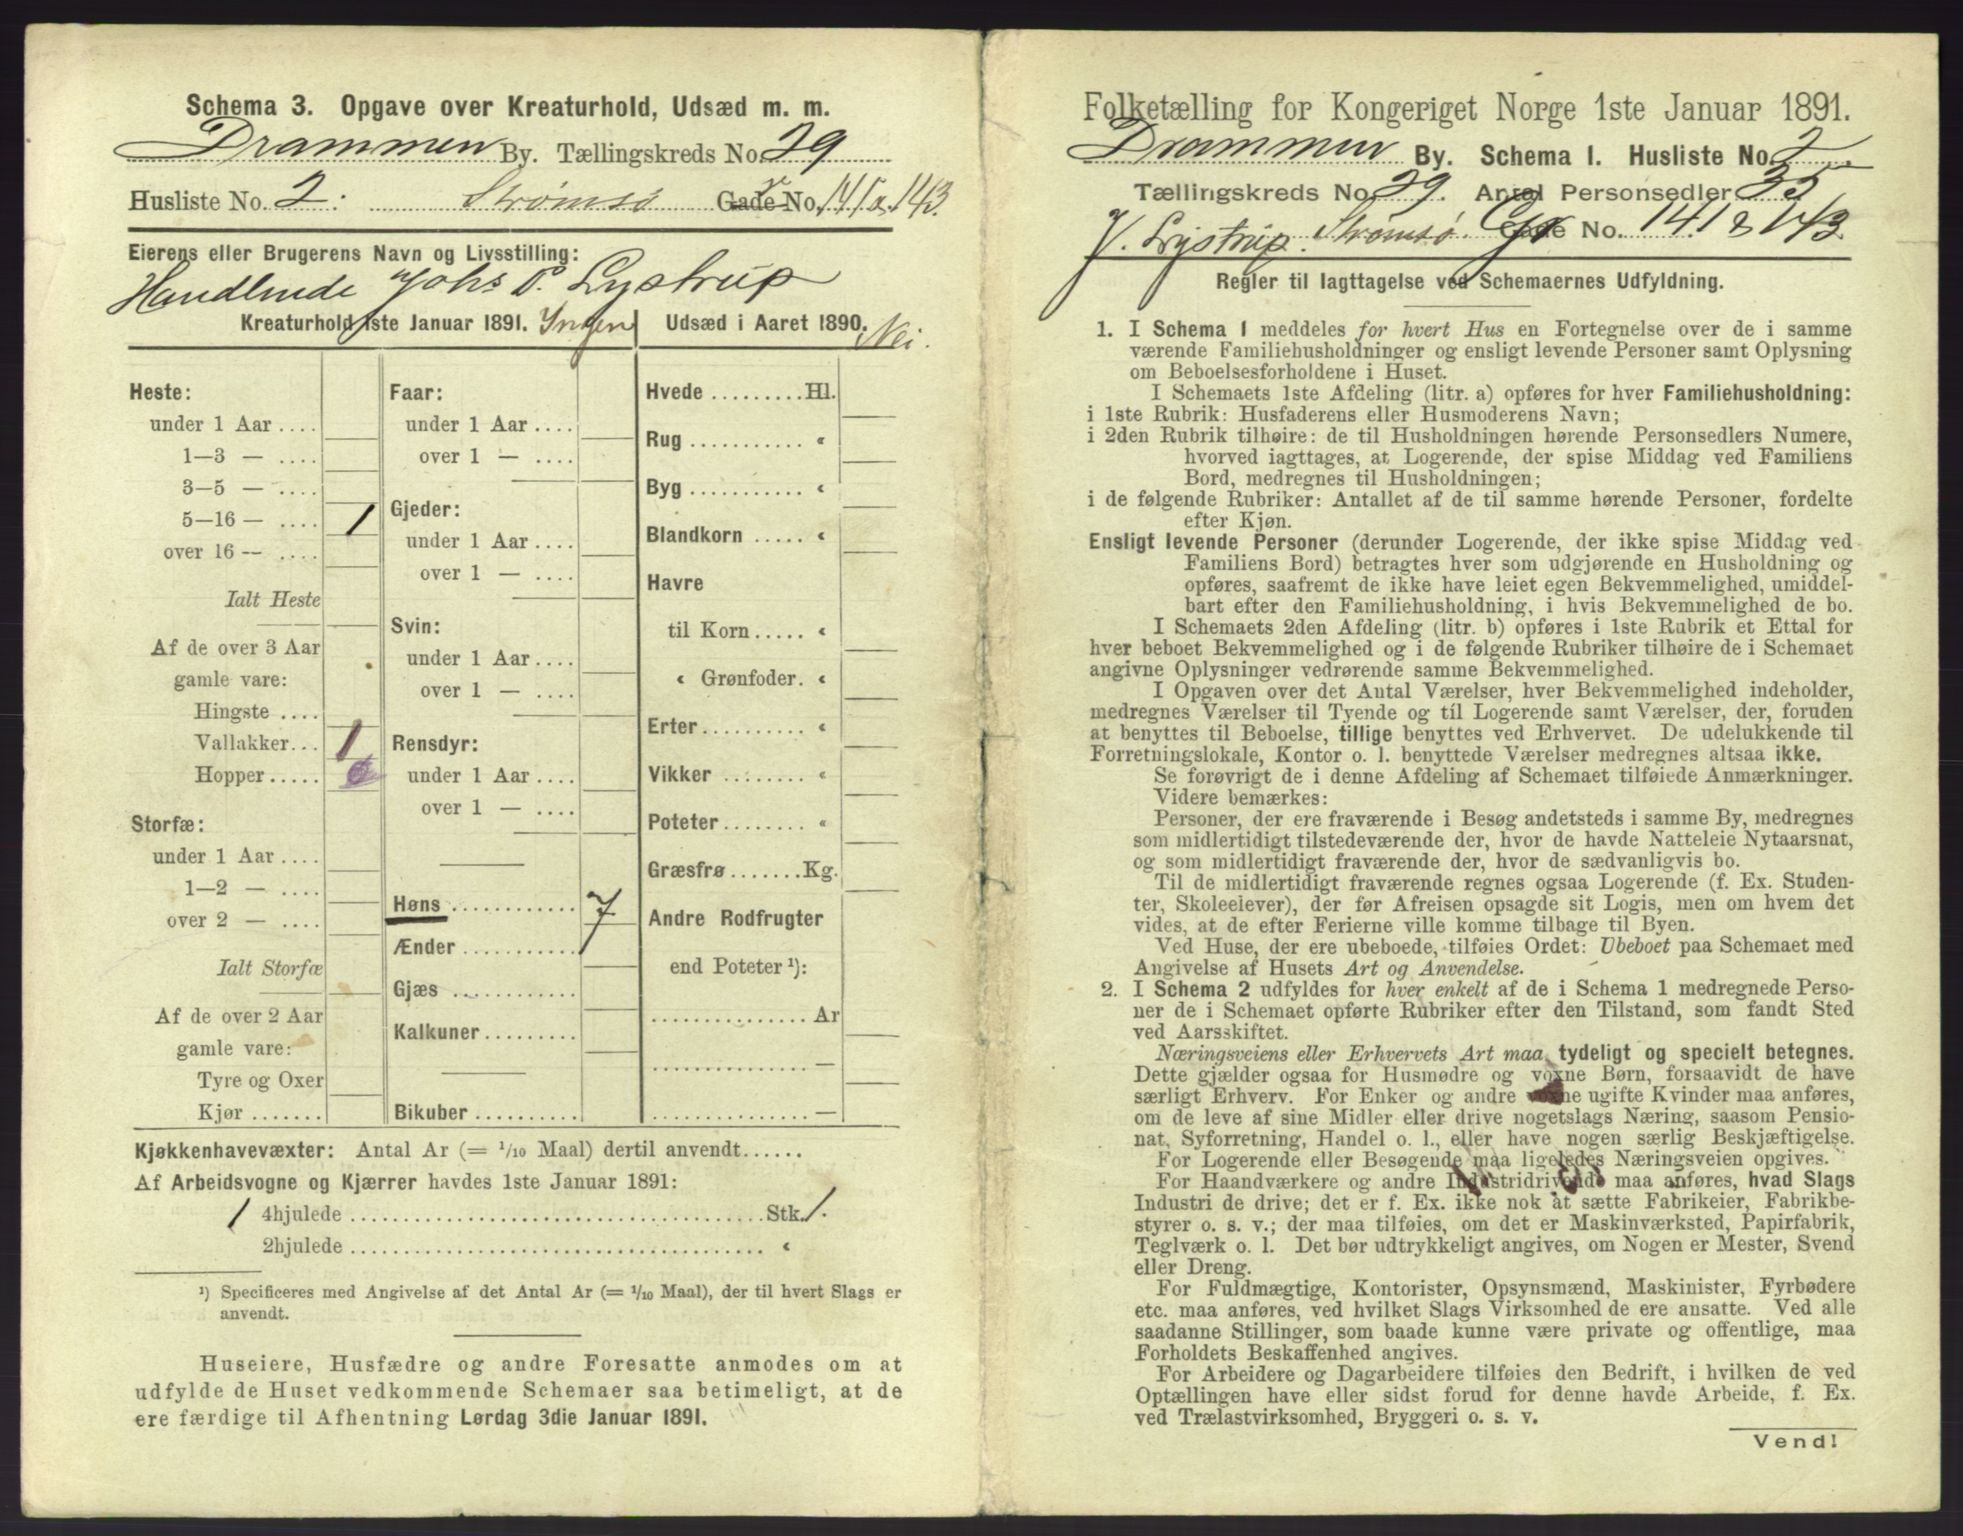 Schema 3. Opgave over Kreaturhold, Udsæd m. m.
Drammen By. Tællingskreds No. 29
Husliste No. 2. Strømsø Gade No. 141 & 143.
Eierens eller Brugerens Navn og Livsstilling:
Handlende Johs P. Lystrup
Kreaturhold 1ste Januar 1891. Ingen
Heste:
under 1 Aar ....
1—3 — ....
3—5 — ....
5—16 — .... 1
over 16 — ....
Ialt Heste
Af de over 3 Aar
gamle vare:
Hingste ....
Vallakker... 1
Hopper .....
Storfæ:
under 1 Aar ....
1—2 — ....
over 2 — ....
Ialt Storfæ
Af de over 2 Aar
gamle vare:
Tyre og Oxer
Kjør .......
Faar:
under 1 Aar ....
over 1 — ....
Gjeder:
under 1 Aar ....
over 1 — ....
Svin:
under 1 Aar ....
over 1 — ....
Rensdyr:
under 1 Aar ....
over 1 — ....
Høns ............ 7
Ænder ...........
Gjæs ............
Kalkuner .........
Bikuber ..........
Udsæd i Aaret 1890. Nei.
Hvede .........Hl.
Rug ........... «
Byg ........... «
Blandkorn ..... «
Havre
til Korn ..... «
« Grønfoder. «
Erter .......... «
Vikker ........ «
Poteter ........ «
Græsfrø .......Kg.
Andre Rodfrugter
end Poteter ¹):
............... Ar
............... —
............... —
Kjøkkenhavevæxter: Antal Ar (= 1/10 Maal) dertil anvendt......
Af Arbeidsvogne og Kjærrer havdes 1ste Januar 1891:
1 4hjulede ........................................Stk. 1.
2hjulede ........................................ «
¹) Specificeres med Angivelse af det Antal Ar (= 1/10 Maal), der til hvert Slags er
anvendt.
Huseiere, Husfædre og andre Foresatte anmodes om at
udfylde de Huset vedkommende Schemaer saa betimeligt, at de
ere færdige til Afhentning Lørdag 3die Januar 1891.
Folketælling for Kongeriget Norge 1ste Januar 1891.
Drammen By. Schema 1. Husliste No. 2.
Tællingskreds No. 29. Antal Personsedler 35
J. Lystrup. Strømsø. Gade No. 141 & 143
Regler til Iagttagelse ved Schemaernes Udfyldning.
1. I Schema 1 meddeles for hvert Hus en Fortegnelse over de i samme
værende Familiehusholdninger og ensligt levende Personer samt Oplysning
om Beboelsesforholdene i Huset.
I Schemaets 1ste Afdeling (litr. a) opføres for hver Familiehusholdning:
i 1ste Rubrik: Husfaderens eller Husmoderens Navn;
i 2den Rubrik tilhøire: de til Husholdningen hørende Personsedlers Numere,
hvorved iagttages, at Logerende, der spise Middag ved Familiens
Bord, medregnes til Husholdningen;
i de følgende Rubriker: Antallet af de til samme hørende Personer, fordelte
efter Kjøn.
Ensligt levende Personer (derunder Logerende, der ikke spise Middag ved
Familiens Bord) betragtes hver som udgjørende en Husholdning og
opføres, saafremt de ikke have leiet egen Bekvemmelighed, umiddel-
bart efter den Familiehusholdning, i hvis Bekvemmelighed de bo.
I Schemaets 2den Afdeling (litr. b) opføres i 1ste Rubrik et Ettal for
hver beboet Bekvemmelighed og i de følgende Rubriker tilhøire de i Schemaet
angivne Oplysninger vedrørende samme Bekvemmelighed.
I Opgaven over det Antal Værelser, hver Bekvemmelighed indeholder,
medregnes Værelser til Tyende og til Logerende samt Værelser, der, foruden
at benyttes til Beboelse, tillige benyttes ved Erhvervet. De udelukkende til
Forretningslokale, Kontor o. l. benyttede Værelser medregnes altsaa ikke.
Se forøvrigt de i denne Afdeling af Schemaet tilføiede Anmærkninger.
Videre bemærkes:
Personer, der ere fraværende i Besøg andetsteds i samme By, medregnes
som midlertidigt tilstedeværende der, hvor de havde Natteleie Nytaarsnat,
og som midlertidigt fraværende der, hvor de sædvanligvis bo.
Til de midlertidigt fraværende regnes ogsaa Logerende (f. Ex. Studen-
ter, Skoleelever), der før Afreisen opsagde sit Logis, men om hvem det
vides, at de efter Ferierne ville komme tilbage til Byen.
Ved Huse, der ere ubeboede, tilføies Ordet: Ubeboet paa Schemaet med
Angivelse af Husets Art og Anvendelse.
2. I Schema 2 udfyldes for hver enkelt af de i Schema 1 medregnede Perso-
ner de i Schemaet opførte Rubriker efter den Tilstand, som fandt Sted
ved Aarsskiftet.
Næringsveiens eller Erhvervets Art maa tydeligt og specielt betegnes.
Dette gjælder ogsaa for Husmødre og voxne Børn, forsaavidt de have
særligt Erhverv. For Enker og andre voxne ugifte Kvinder maa anføres,
om de leve af sine Midler eller drive nogetslags Næring, saasom Pensio-
nat, Syforretning, Handel o. l., eller have nogen særlig Beskjæftigelse.
For Logerende eller Besøgende maa ligeledes Næringsveien opgives.
For Haandværkere og andre Industridrivende maa anføres, hvad Slags
Industri de drive; det er f. Ex. ikke nok at sætte Fabrikeier, Fabrikbe-
styrer o. s. v.; der maa tilføies, om det er Maskinværksted, Papirfabrik,
Teglværk o. l. Det bør udtrykkeligt angives, om Nogen er Mester, Svend
eller Dreng.
For Fuldmægtige, Kontorister, Opsynsmænd, Maskinister, Fyrbødere
etc. maa anføres, ved hvilket Slags Virksomhed de ere ansatte. Ved alle
saadanne Stillinger, som baade kunne være private og offentlige, maa
Forholdets Beskaffenhed angives.
For Arbeidere og Dagarbeidere tilføies den Bedrift, i hvilken de ved
Optællingen have eller sidst forud for denne havde Arbeide, f. Ex.
ved Trælastvirksomhed, Bryggeri o. s. v.
Vend!